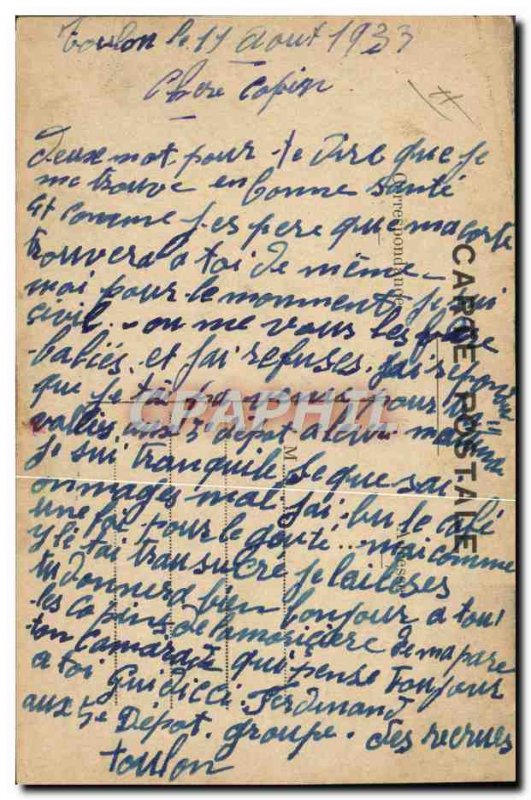 Toulon le 11 Aout 1933
Chere Copin
deux mot pour te dire que je
me trouve en bonne santé
et comme j'espere que ma carte
trouvera a toi de même
moi pour le momment je sui
civil. on me vous les
babiés et j'ai refuses. j'ai
que je pour
5 depot a leur
je sui tranquile. se que sai
ommages moi j'ai bu le café
une foi pour le gouté... mai comme
y lé tai tran sucré je lai loses
tu donnera bien bonjour a tout
les copins de lamoriçiere de ma pare
ton camarade qui pense toujour
a toi Guidicci Ferdinand
aux 5e Dépot. groupe. des recrues
toulon
CARTE POSTALE
Correspondance
Adresse
M
CRAPHIL